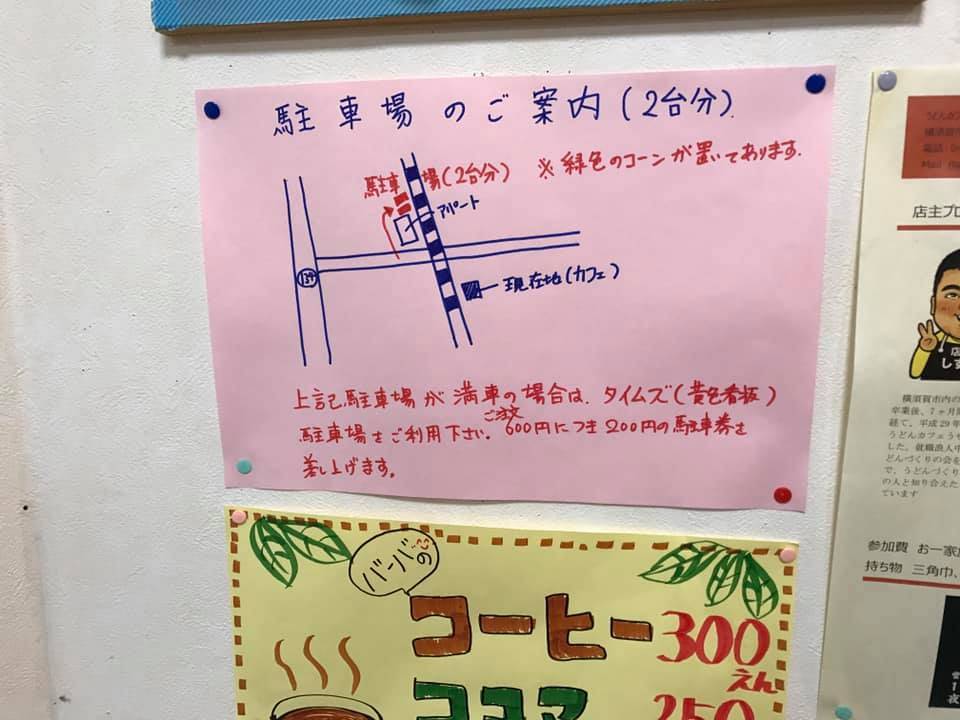 駐車場のご案内(2台分).
駐車場(2台分)
※緑色のコーンが置いてあります.
アパート
134
現在地(カフェ)
上記駐車場が満車の場合は、タイムズ(黄色看板)
駐車場をご利用下さい. ご注文600円につき200円の駐車券を
差し上げます。
バーバの
コーヒー300
えん
ココア 250
うどんカフ
横須賀
電話:0
Mail
店主プロ
店
しず
横須賀市内の
卒業後、7ヶ月間
経て、平成29年
うどんカフェうや
した。就職浪人中
どんづくりの会を
で、うどんづくり
の人と知り合えた
ています
参加費 お一家族
持ち物 三角巾、